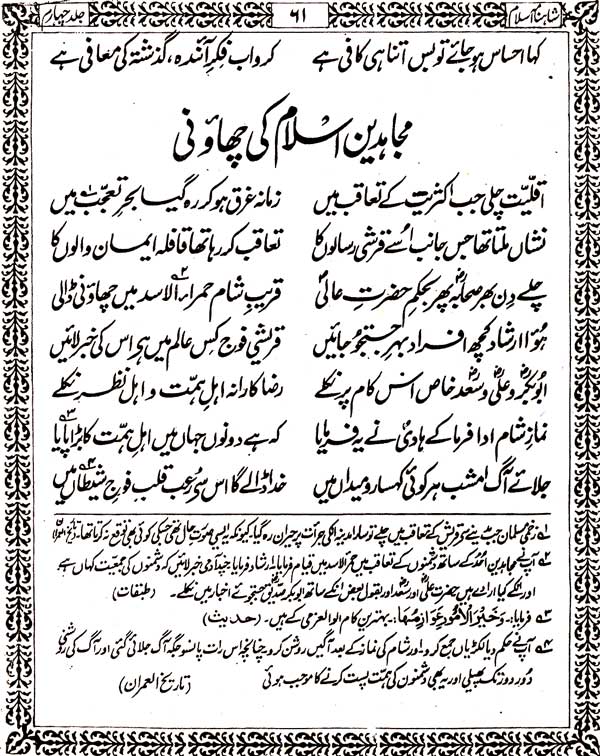 شاہنامہ اسلام ۶۱ جلد چہارم
کہا احساس ہو جائے تو بس اتنا ہی کافی ہے کرو اب فکرِ آئندہ، گذشتہ کی معافی ہے
مجاہدین اسلام کی چھاؤنی
اقلیت چلی جب اکثریت کے تعاقب میں زمانہ غرق ہو کر رہ گیا بحرِ تعجب میں ۱
نشاں ملتا تھا جس جانب اُسے قرشی رسالوں کا تعاقب کر رہا تھا قافلہ ایمان والوں کا
چلے دِن بھر صحابہؓ پھر بحکمِ حضرتِ عالیؐ قریبِ شام حمراء الاسد میں چھاؤنی ڈالی ۲
ہوا ارشاد کچھ افراد بہرِ جستجو جائیں قریشی فوج کِس عالم میں ہے اس کی خبر لائیں
ابوبکرؓ و علیؓ و سعدؓ خاص اس کام پر نکلے رضاکارانہ اہلِ ہمت و اہلِ نظر نکلے
نمازِ شام ادا فرما کے ہادیؐ نے یہ فرمایا کہ ہے دونوں جہاں میں اہلِ ہمت کا بڑا پایا ۳
جلائے آگ امشب ہر کوئی کہسار و میداں میں خدا ڈالے گا اس سے رعب قلبِ فوجِ شیطاں میں ۴
۱ زخمی مسلمان جب بنے قریش کے تعاقب میں چلے تو سارا مدینہ انکی جرأت پر حیران رہ گیا کیونکہ ایسی صورت حال تھی جسکی کوئی بھی توقع نہ کرتا تھا۔
۲ آپ نے مجاہدین اُحد کے ساتھ دشمنوں کے تعاقب میں حمراء الاسد میں قیام فرمایا۔ ارشاد فرمایا چند آدمی خبر لائیں کہ دشمنوں کی جمعیت کہاں ہے
اور انکے کیا ارادے ہیں حضرت علیؓ اور سعدؓ اور بقول بعض انکے ساتھ ابوبکر صدیقؓ جستجوئے اخبار میں نکلے۔ (طبقات)
۳ فرمایا۔ وَخَیْرُ الْاُمُوْرِ عَوَازِمُهَا۔ بہترین کام اولوالعزمی کے ہیں۔ (حدیث)
۴ آپ نے حکم دیا لکڑیاں جمع کرو۔ اور شام کی نماز کے بعد آگیں روشن کرو۔ چنانچہ اس رات پانسو جگہ آگ جلائی گئی اور آگ کی روشنی
دور دور تک پھیلی اور یہ بھی دشمنوں کی ہمت پست کرنے کا موجب ہوئی (تاریخ العمران)